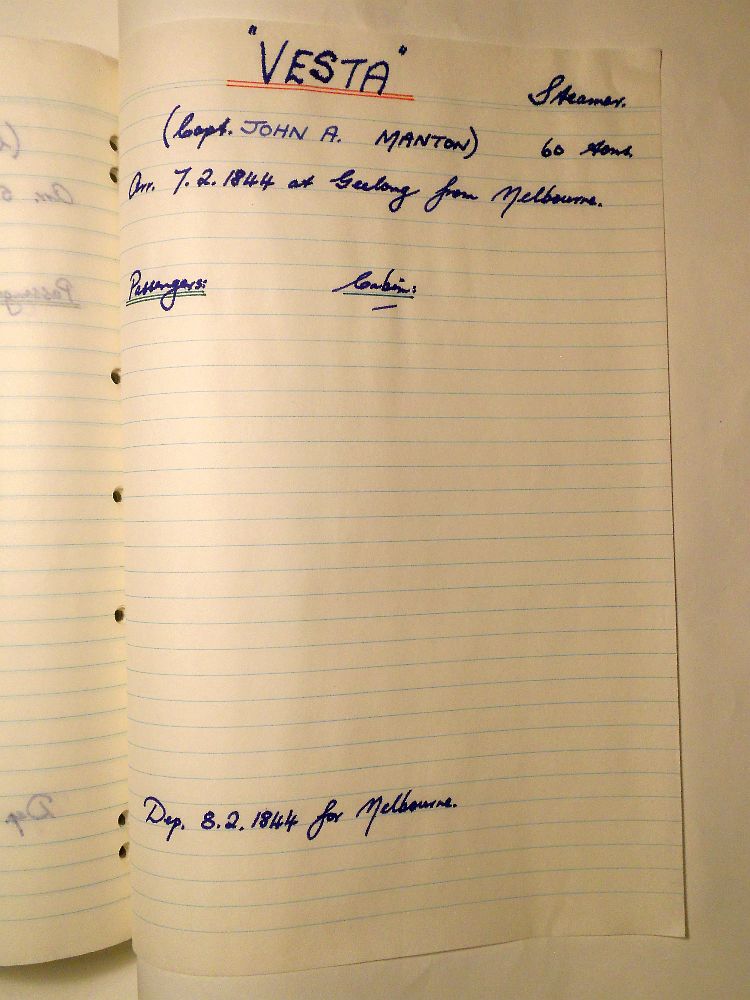 "VESTA"
Steamer.
(Capt. JOHN A. MANTON) 60 tons.
Arr. 7.2.1844 at Geelong from Melbourne.
Passengers: Cabin:
Dep. 8.2.1844 for Melbourne.